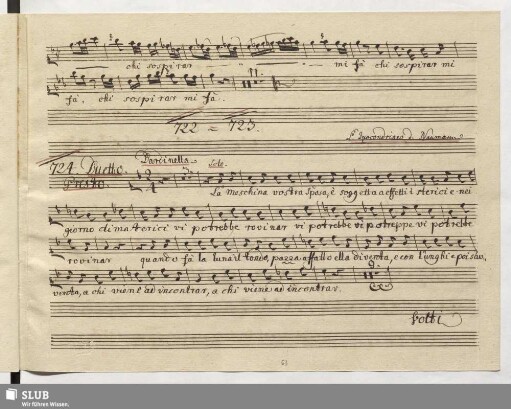 chi sospirar mi fà chi sospirar mi
fà, chi sospirar mi fà.
722 = 723.
L'Ipocondriaco d. Naumann
724. Duetto. Darinetta. Solo.
Presto. La Meschina vostra Sposa, è soggetta a effetti isterici e nei
giorno climaterici vi potrebbe rovinar vi potrebbe vi potreppe vi potrebbe
rovinar quanto fà la luna il tondo, pazza affatto ella diventa, e con l'unghi e poi
venta, a chi viene ad incontrar, a chi viene ad incontrar.
Volti
SLUB
Wir führen Wissen.